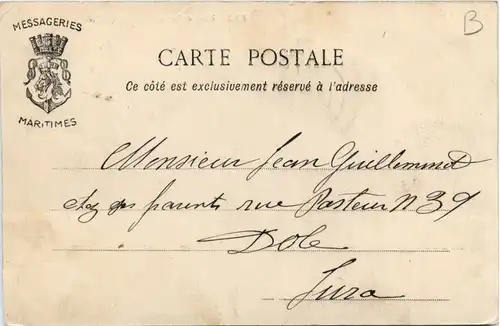 MESSAGERIES
MARITIMES
B
CARTE POSTALE
Ce côté est exclusivement réservé à l'adresse
Monsieur Jean Guilleminot
chez ses parents rue Pasteur N 39
Dole
Jura